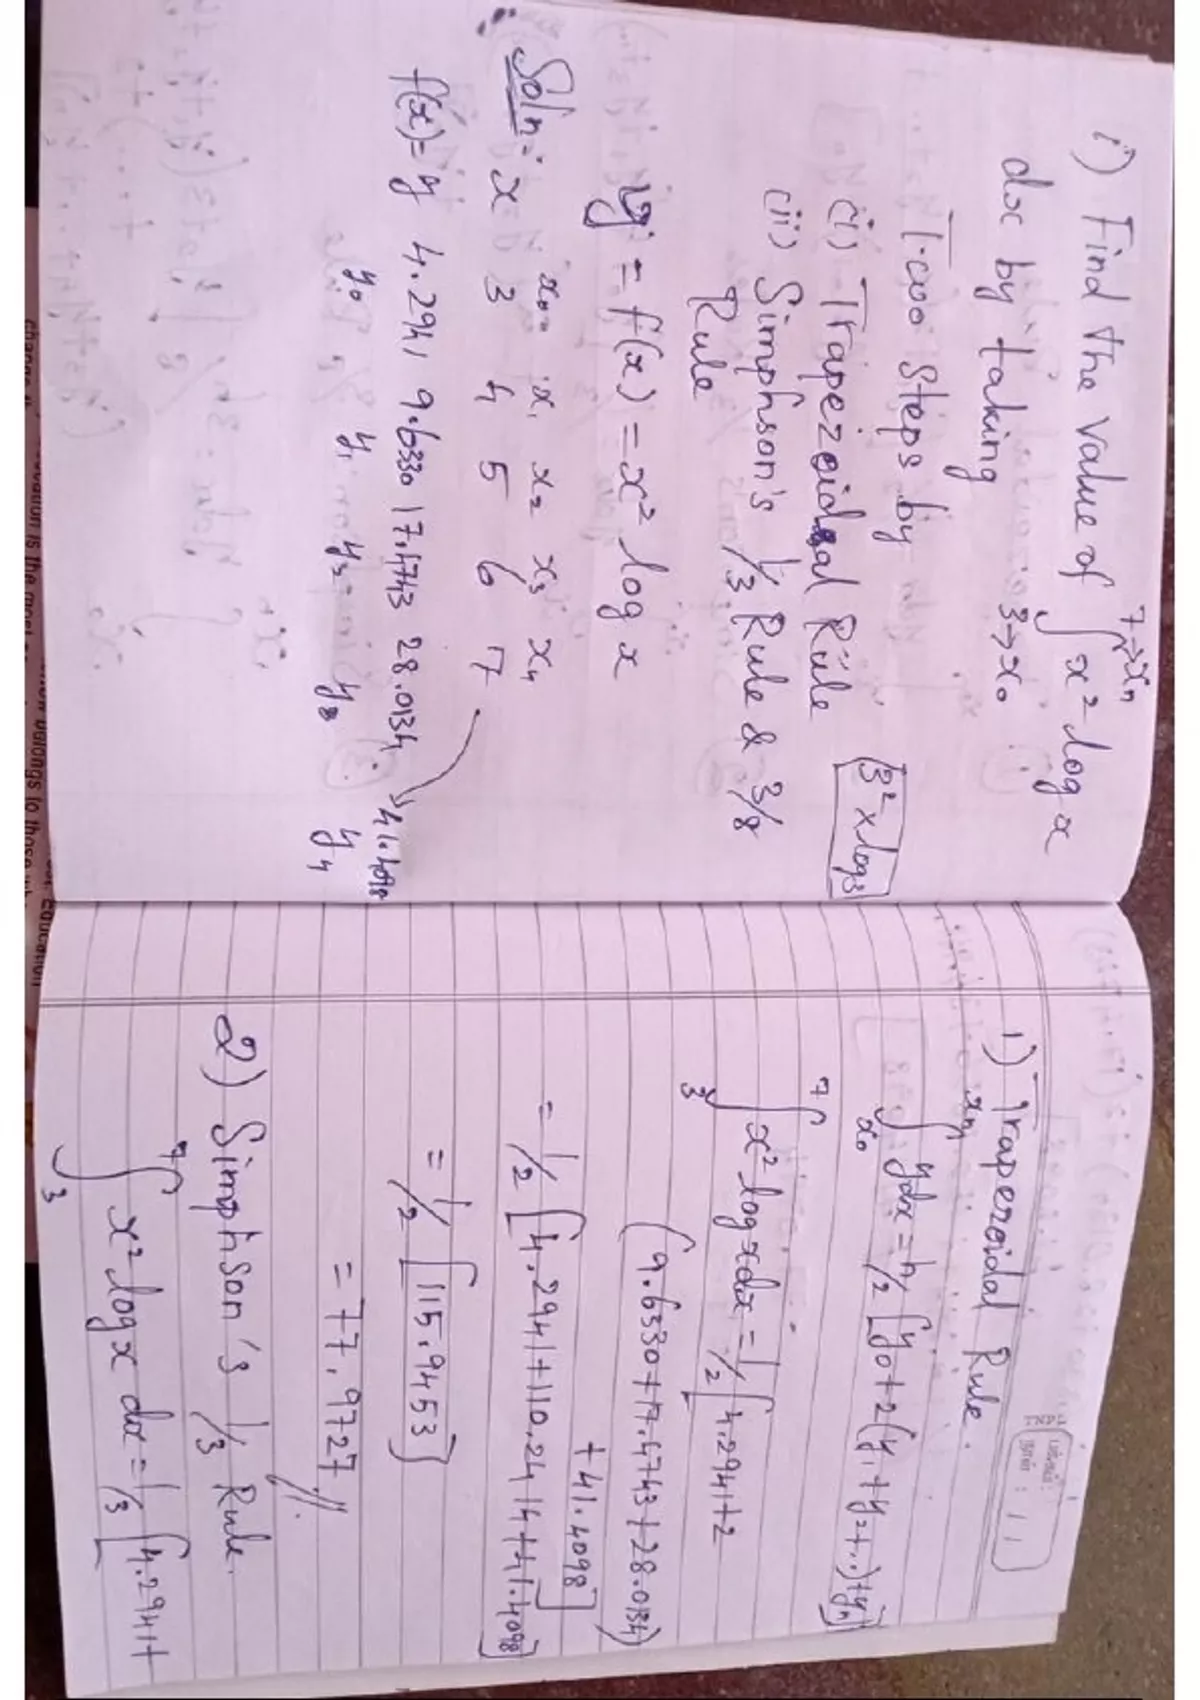 i) Find the value of ∫ x² log x
7→xn
3→x₀
dx by taking
Two steps by
(i) Trapezoidal Rule
3² x log3
(ii) Simphson's 1/3 Rule & 3/8
Rule
y = f(x) = x² log x
Soln:-
x₀ x₁ x₂ x₃ x₄
x 3 4 5 6 7
f(x)=y 4.2941 9.6330 17.4743 28.0134 41.4098
y₀ y₁ y₂ y₃ y₄
1) Trapezoidal Rule.
∫x₀^xn ydx = h/2 [y0+2(y₁+y₂+..)+yn]
∫₃⁷ x² log x dx = 1/2 [4.2941+2
(9.6330+17.4743+28.0134)
+41.4098]
= 1/2 [4.2941+110.2414+41.4098]
= 1/2 [115.9453]
= 77.9727 //.
2) Simphson's 1/3 Rule.
∫₃⁷ x² log x dx = 1/3 [4.2941+